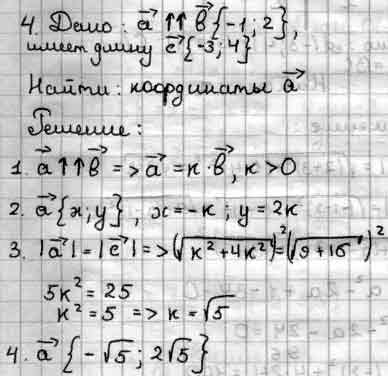 4. Дано: a⃗ ↑↑ b⃗ {-1; 2},
имеет длину c⃗ {-3; 4}
Найти: координаты a⃗
Решение:
1. a⃗ ↑↑ b⃗ => a⃗ = к · b⃗, к > 0
2. a⃗ {x; y}, x = -к; y = 2к
3. |a⃗| = |c⃗| => (√(к² + 4к²))² = (√(9 + 16))²
5к² = 25
к² = 5 => к = √5
4. a⃗ {-√5; 2√5}